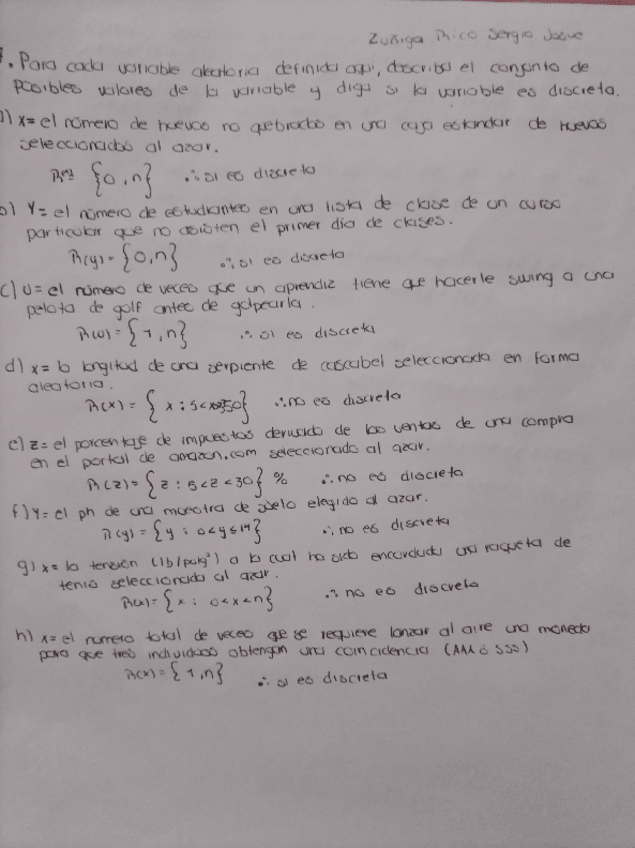 Zuñiga Rico Sergio Josue
. Para cada variable aleatoria definida aqui, describa el conjunto de
posibles valores de la variable y diga si la variable es discreta.
x= el número de huevos no quebrados en una caja estandar de huevos
seleccionados al azar.
{0,n} ∴ si es discreta
Y= el número de estudiantes en una lista de clase de un curso
particular que no asisten el primer dia de clases.
R(y)= {0,n} ∴ si es discreta
c) U= el número de veces que un aprendiz tiene que hacerle swing a una
pelota de golf antes de golpearla.
R(u)= {1,n} ∴ si es discreta
d) x= la longitud de una serpiente de cascabel seleccionada en forma
aleatoria.
R(x)= { x : 5< 250} ∴ no es discreta
e) z= el porcentaje de impuestos derivado de las ventas de una compra
en el portal de amazon.com seleccionado al azar.
R(z)= {z : 5<z<30} % ∴ no es discreta
f) Y= el ph de una muestra de suelo elegido al azar.
R(y)= {y : 0<y≤14} ∴ no es discreta
g) x= la tensión (lb/pulg²) a la cual ha sido encordada una raqueta de
tenis seleccionada al azar.
R(x)= {x : 0<x<n} ∴ no es discreta
h) x= el numero total de veces que se requiere lanzar al aire una moneda
para que tres individuos obtengan una coincidencia (AAA ó SSS)
R(x)= {1,n} ∴ si es discreta